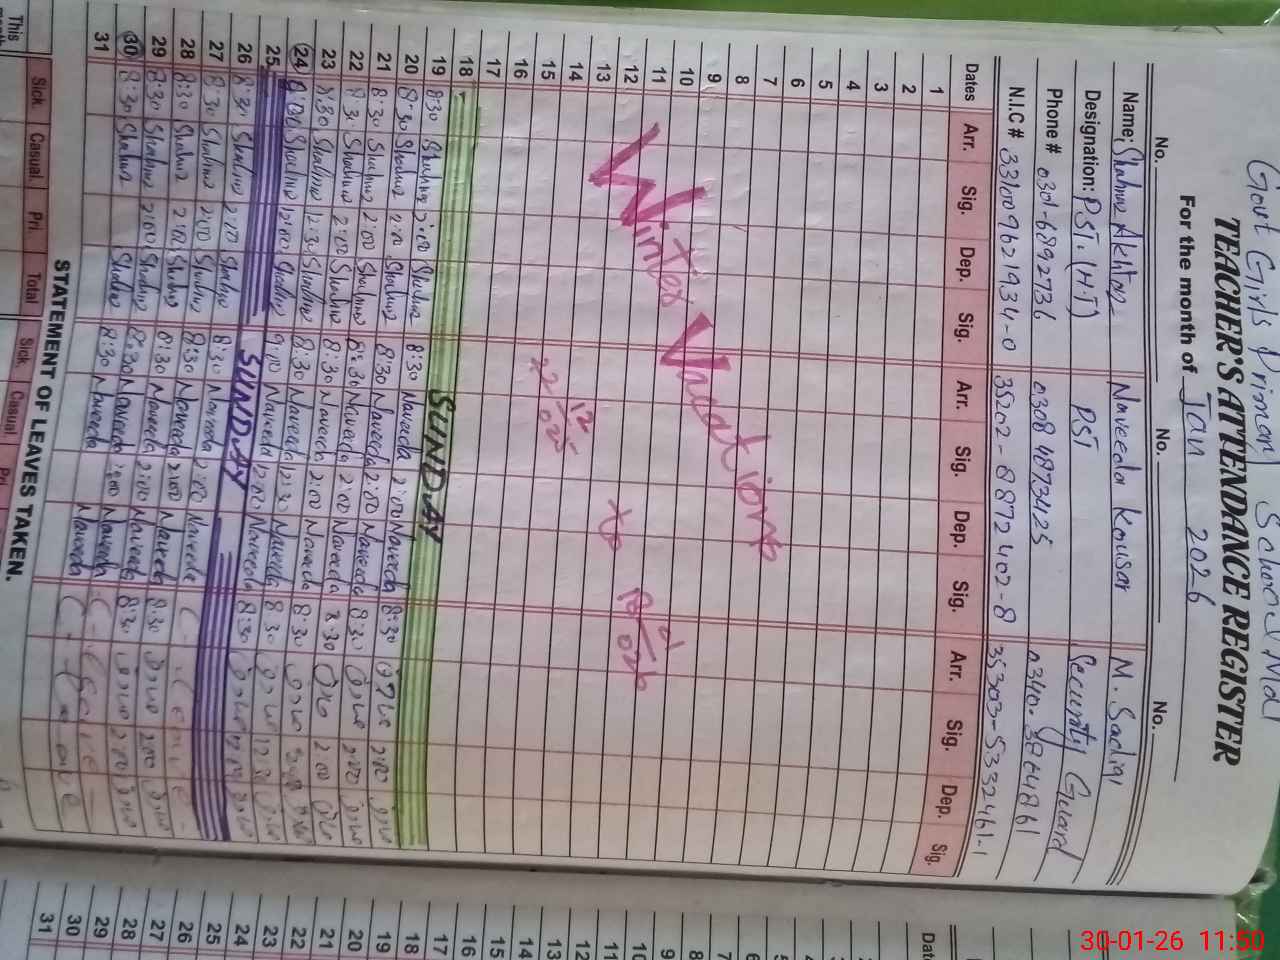 Govt Girls Primary School Nd
TEACHER'S ATTENDANCE REGISTER
For the month of Jan 2026
No. No. No.
Name: Shahnaz Akhtar Naveeda Kousar M. Sadiq
Designation: PST. (H.T) PST Security Guard
Phone # 0301-6892736 0308 4873425
N.I.C # 35202-8872402-8 35303-5332461-1
Dates Arr. Sig. Dep. Sig. Arr. Sig. Dep. Sig. Arr. Sig. Dep. Sig.
1
2
3
4
5
6
7
8
9
10
11
12
13
14
15
16
17
Winter Vacations
18 SUNDAY
19 8:30 Shahnaz 2:00 Shahnaz 8:30 Naveeda 2:00 Naveeda 8:30 2:00
20 8:30 Shahnaz 2:00 Shahnaz 8:30 Naveeda 2:00 Naveeda 8:30 2:00
21 8:30 Shahnaz 2:00 Shahnaz 8:30 Naveeda 2:00 Naveeda 8:30 2:00
22 8:30 Shahnaz 2:00 Shahnaz 8:30 Naveeda 2:00 Naveeda 8:30
23 8:30 Shahnaz 12:30 Shahnaz 8:30 Naveeda 12:30 Naveeda 8:30 12:30
24 Shahnaz 12:00 Shahnaz 9:00 Naveeda 12:00 Naveeda 8:30
25 SUNDAY
26 8:30 Shahnaz 2:00 Shahnaz 8:30 Naveeda 2:00 Naveeda Leave
27 8:30 Shahnaz 2:00 Shahnaz 8:30 Naveeda 2:00 Naveeda 8:30 2:00
28 8:30 Shahnaz 2:00 Shahnaz 8:30 Naveeda 2:00 Naveeda 8:30 2:00
29 8:30 Shahnaz 2:00 Shahnaz 8:30 Naveeda 2:00 Naveeda Leave
30 8:30 Shahnaz Shahnaz 8:30 Naveeda Naveeda Leave
31
STATEMENT OF LEAVES TAKEN.
This Sick Casual. Pri. Total Sick. Casual. Pri
month
Dates
7
8
9
10
11
12
13
14
15
16
17
18
19
20
21
22
23
24
25
26
27
28
29
30
31
30-01-26 11:50